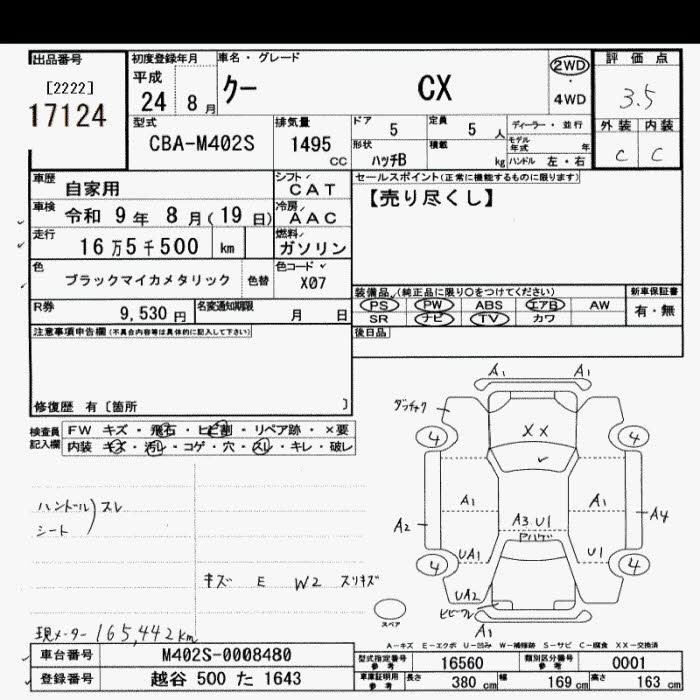 出品番号
[2222]
17124
初度登録年月
平成
24 8月
車名・グレード
クー CX
2WD
・
4WD
評価点
3.5
外装 内装
C C
型式
CBA-M402S
排気量
1495
CC
ドア 5
定員 5人
ディーラー・並行
形状
ハッチB
積載
kg
モデル年式 年
ハンドル 左・右
車歴
自家用
シフト
CAT
車検
令和 9年 8月(19日)
冷房
AAC
走行
16万5千500 km
燃料
ガソリン
色
ブラックマイカメタリック
色替
色コード
X07
R券
9,530円
名変通知期限
月 日
セールスポイント(正常に機能するものに限ります)
【売り尽くし】
装備品(純正品に限り○をつけてください)
PS PW ABS エアB AW
SR ナビ TV カワ
新車保証書
有・無
後日品
注意事項申告欄(不具合内容等は具体的に記入して下さい)
修復歴 有〔箇所 〕
検査員
記入欄
FW キズ・飛石・ヒビ割・リペア跡・×要
内装 キズ・汚レ・コゲ・穴・スレ・キレ・破レ
ハンドル
シート
スレ
キズ E W2 スリキズ
現メーター 165,442km
A1 A1
4 4
XX
A1 A1
A2 A4
A3 U1
UA1 U1
4 4
UA2
A1
スペア
A-キズ E-エクボ U-凹み W-補修跡 S-サビ C-腐食 XX-交換済
車台番号 M402S-0008480
登録番号 越谷 500 た 1643
型式指定番号
参考
16560
類別区分番号
参考
0001
車庫証明用
参考
長さ 380 cm 幅 169 cm 高さ 163 cm